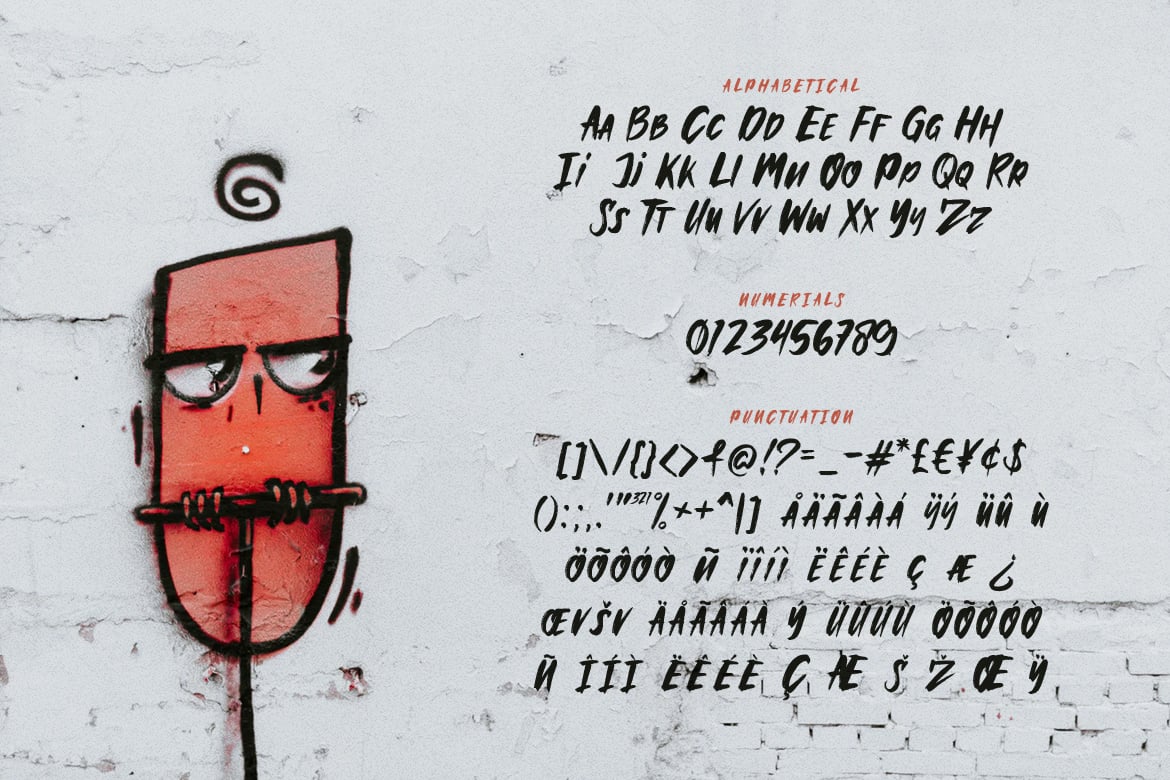 ALPHABETICAL
Aa Bb Cc Dd Ee Ff Gg Hh
Ii Jj Kk Ll Mm Oo Pp Qq Rr
Ss Tt Uu Vv Ww Xx Yy Zz
NUMERIALS
0123456789
PUNCTUATION
[]\/{}<>f@!?=_-#*£€¥¢$
():;,.'"”³²¹%×+^|] ÅÄÃÂÀÁ ŸÝ ÜÛ Ù
ÖÕÔÓÒ Ñ ÏÎÍÌ ËÊÉÈ Ç Æ ¿
ŒVŠV ÄÅÃÂÁÀ Ý ÜÛÚÙ ÖÕÔÓÒ
Ñ ÎÍÌ ËÊÉÈ Ç Æ Š Ž Œ Ÿ